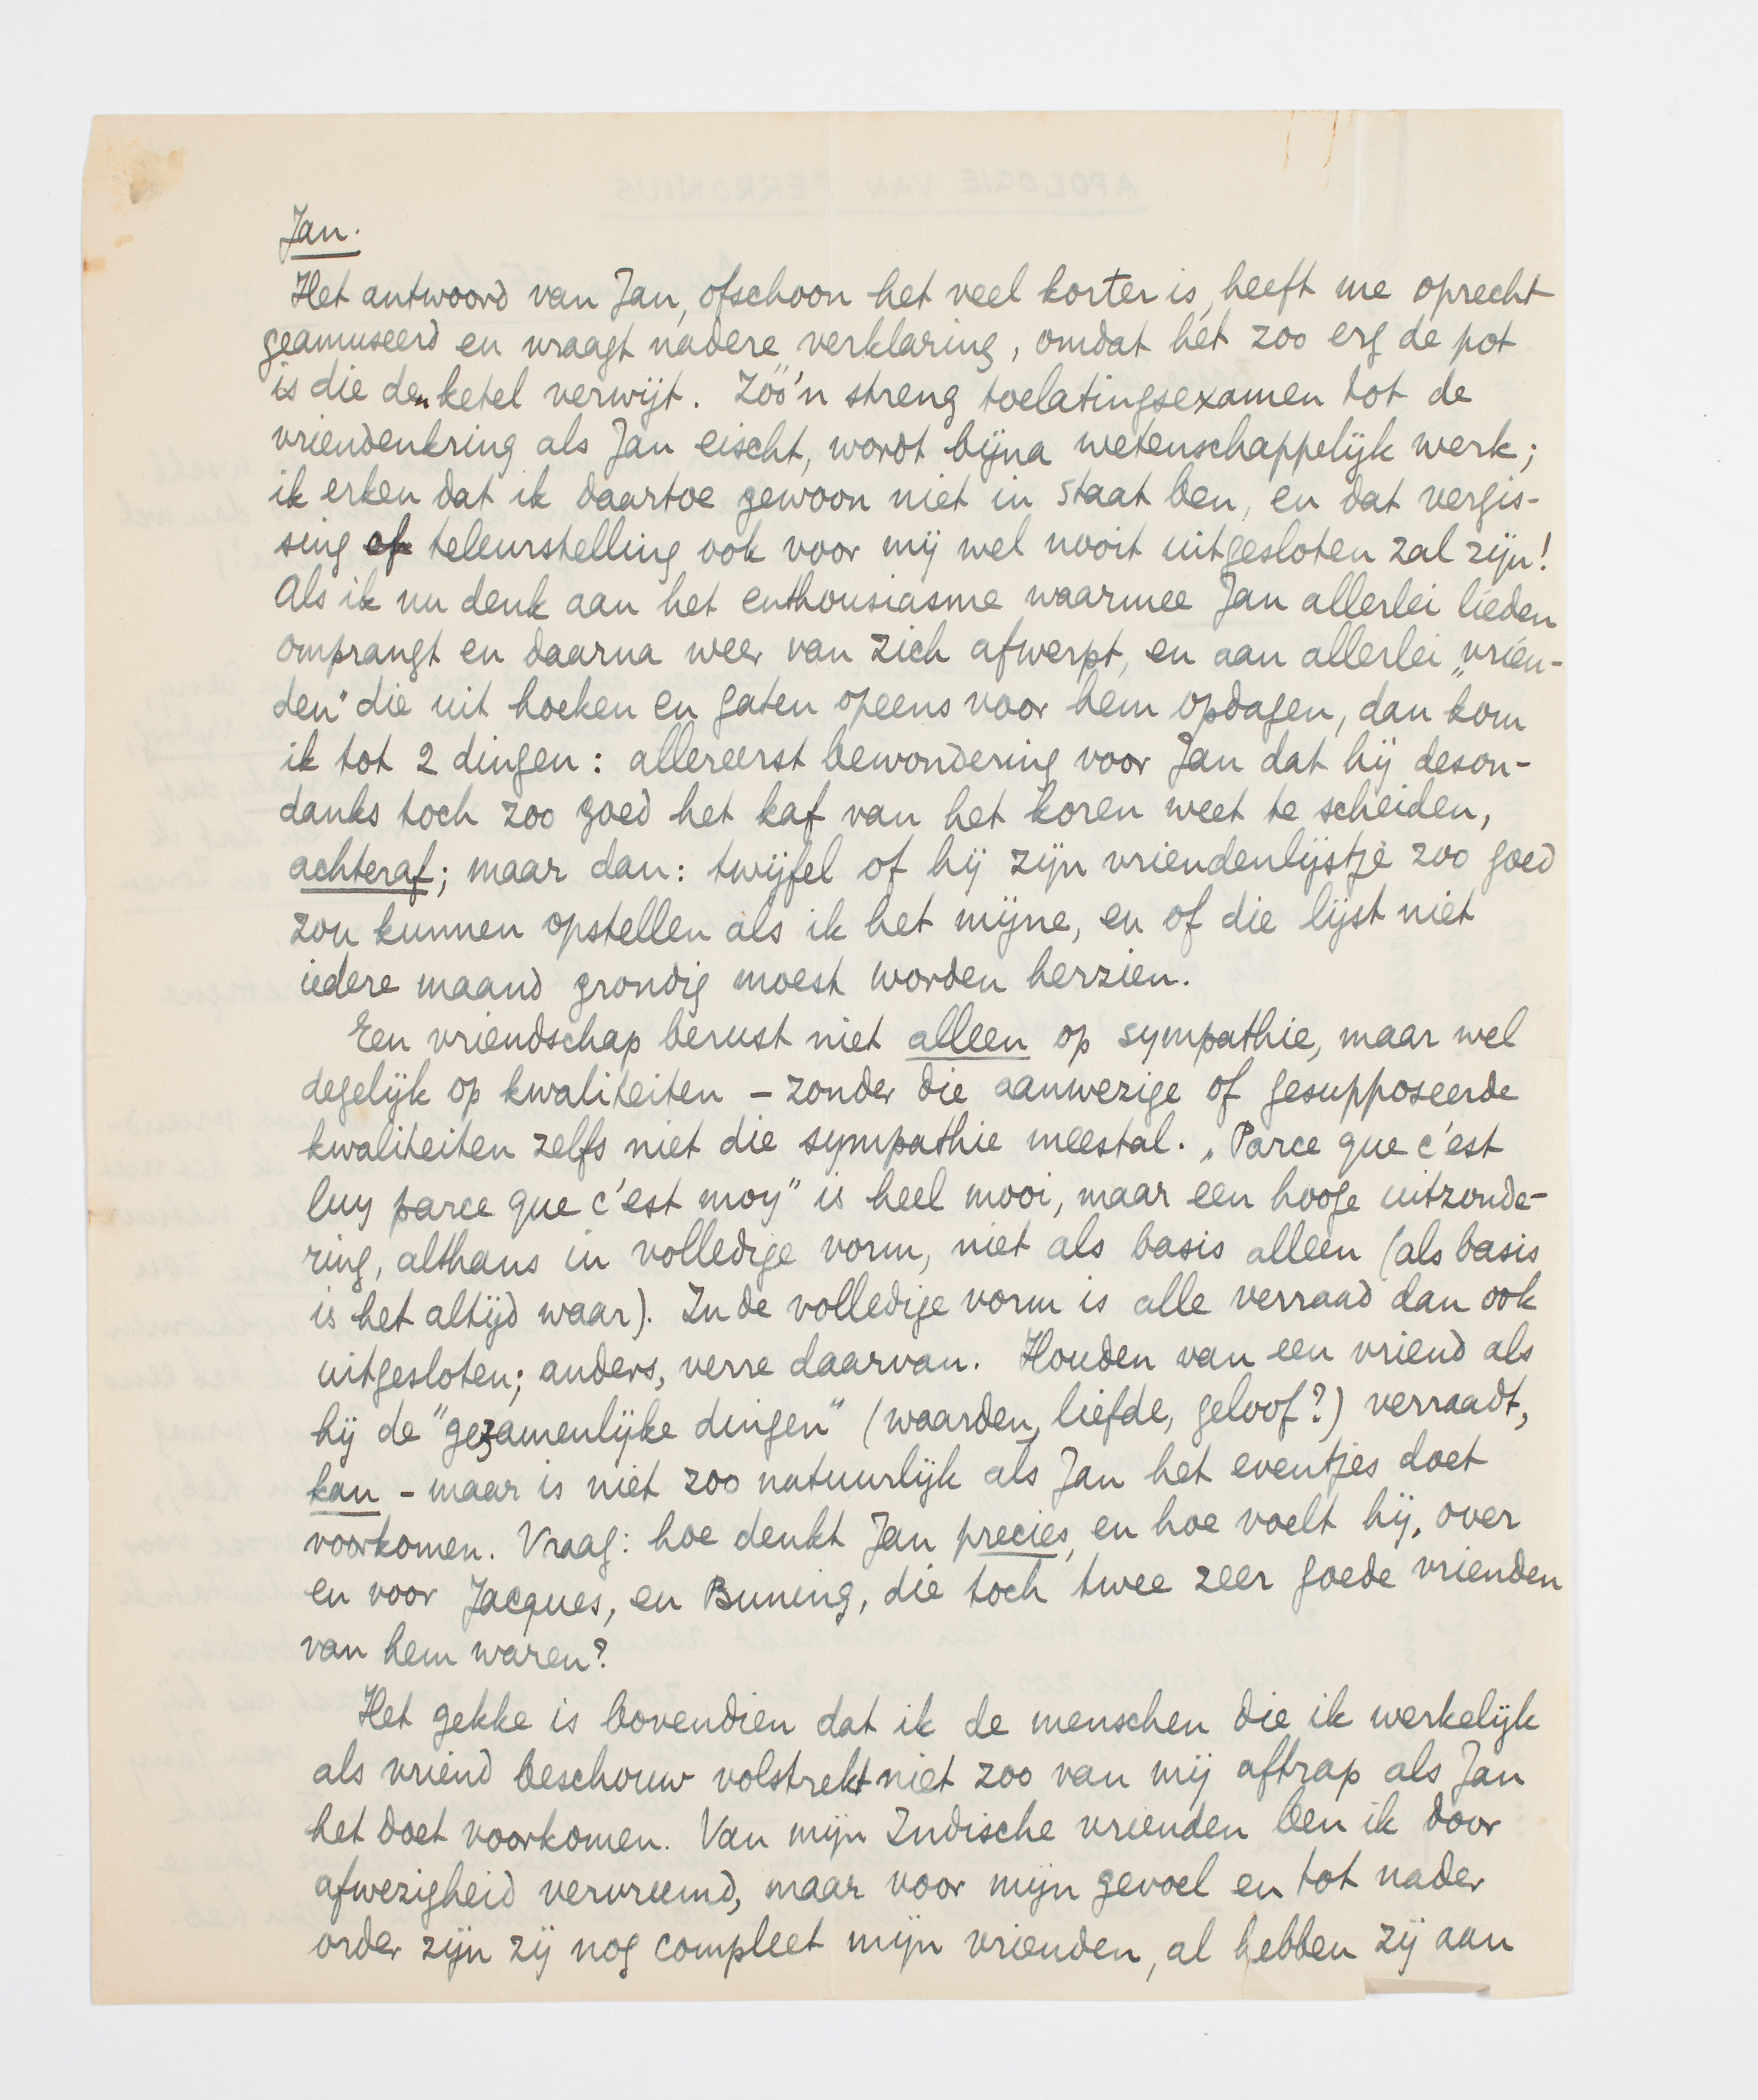 Jan.
Het antwoord van Jan, ofschoon het veel korter is, heeft me oprecht
geamuseerd en vraagt nadere verklaring, omdat het zoo erg de pot
is die den ketel verwijt. Zóó'n streng toelatingsexamen tot de
vriendenkring als Jan eischt, wordt bijna wetenschappelijk werk;
ik erken dat ik daartoe gewoon niet in staat ben, en dat vergis-
sing of teleurstelling ook voor mij wel nooit uitgesloten zal zijn!
Als ik nu denk aan het enthousiasme waarmee Jan allerlei lieden
omprangt en daarna weer van zich afwerpt, en aan allerlei „vrien-
den" die uit hoeken en gaten opeens voor hem opdagen, dan kom
ik tot 2 dingen: allereerst bewondering voor Jan dat hij deson-
danks toch zoo goed het kaf van het koren weet te scheiden,
achteraf; maar dan: twijfel of hij zijn vriendenlijstje zoo goed
zou kunnen opstellen als ik het mijne, en of die lijst niet
iedere maand grondig moest worden herzien.
Een vriendschap berust niet alleen op sympathie, maar wel
degelijk op kwaliteiten – zonder die aanwezige of gesupposeerde
kwaliteiten zelfs niet die sympathie meestal. „Parce que c'est
luy parce que c'est moy" is heel mooi, maar een hooge uitzonde-
ring, althans in volledige vorm, niet als basis alleen (als basis
is het altijd waar). In de volledige vorm is alle verraad dan ook
uitgesloten; anders, verre daarvan. Houden van een vriend als
hij de "gezamenlijke dingen" (waarden, liefde, geloof?) verraadt,
kan – maar is niet zoo natuurlijk als Jan het eventjes doet
voorkomen. Vraag: hoe denkt Jan precies, en hoe voelt hij, over
en voor Jacques, en Buning, die toch twee zeer goede vrienden
van hem waren?
Het gekke is bovendien dat ik de menschen die ik werkelijk
als vriend beschouw volstrekt niet zoo van mij aftrap als Jan
het doet voorkomen. Van mijn Indische vrienden ben ik door
afwezigheid vervreemd, maar voor mijn gevoel en tot nader
order zijn zij nog compleet mijn vrienden, al hebben zij aan